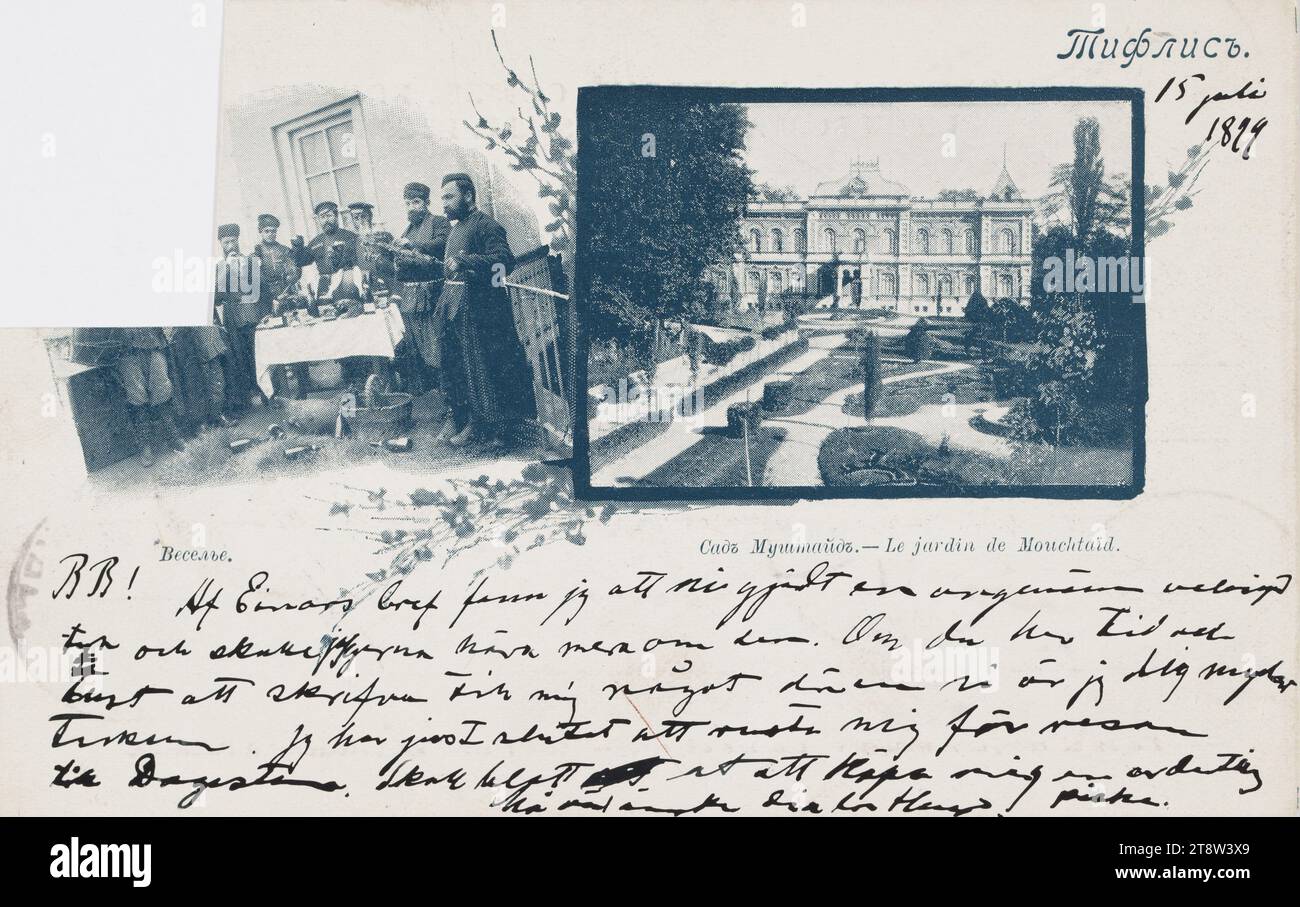 Тифлисъ.
15 juli
1899
Веселье.
Садъ Муштайдъ. — Le jardin de Mouchtaïd.
BB! Af Einars bref fann jg att ni gjort en angenäm
och skulle gerna höra mera om den. Om du har tid och
lust att skrifva till mig något är jg dig mycket
Jg har just slutat att rusta mig för resan
till Dagestan. Skall blott ut att köpa mig en ordentlig
piska.
alamy
Image ID: 2T8W3X9
www.alamy.com